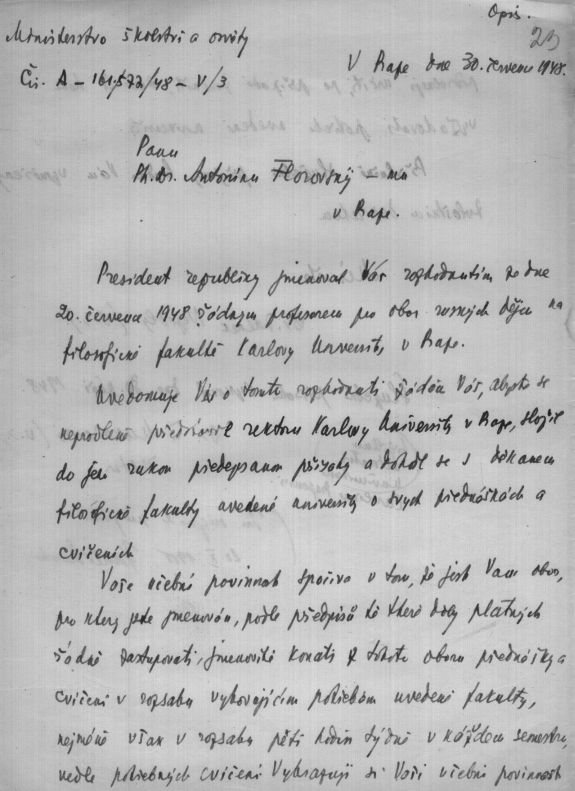 Opis.
23
Ministerstvo školství a osvěty
V Praze dne 30. července 1948.
Čís. A – 161.572/48 – V/3
Panu
Ph.Dr. Antonínu Florovský – mu
v Praze.
President republiky jmenoval Vás rozhodnutím ze dne
20. července 1948 řádným profesorem pro obor ruských dějin na
filosofické fakultě Karlovy University v Praze.
Uvědomuje Vás o tomto rozhodnutí žádám Vás, abyste se
neprodleně představil rektoru Karlovy University v Praze, složil
do jeho rukou předepsanou přísahu a dohodl se s děkanem
filosofické fakulty uvedené university o svých přednáškách a
cvičeních
Vaše učební povinnost spočívá v tom, že jest Vám obor,
pro který jste jmenován, podle předpisů té které doby platných
řádně zastupovati, jmenovitě konati z tohoto oboru přednášky a
cvičení v rozsahu vyhovujícím potřebám uvedené fakulty,
nejméně však v rozsahu pěti hodin týdně v každém semestru,
vedle potřebných cvičení Vyhrazuji si Vaši učební povinnost